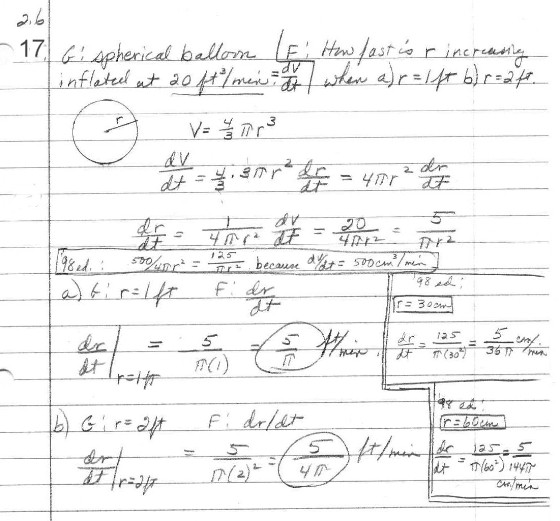 2.6
17. G: spherical balloon F: How fast is r increasing
inflated at 20 ft³/min = dV/dt when a) r = 1 ft b) r = 2 ft.
r
V = 4/3 πr³
dV/dt = 4/3 · 3πr² dr/dt = 4πr² dr/dt
dr/dt = 1/4πr² dV/dt = 20/4πr² = 5/πr²
'98 ed.: 500/4πr² = 125/πr² because dV/dt = 500 cm³/min
a) G: r = 1 ft F: dr/dt
dr/dt | r=1 ft = 5/π(1) = 5/π ft/min.
'98 ed:
r = 30 cm
dr/dt = 125/π(30²) = 5/36π cm/min
b) G: r = 2 ft F: dr/dt
dr/dt | r=2 ft = 5/π(2)² = 5/4π ft/min
'98 ed:
r = 60 cm
dr/dt = 125/π(60²) = 5/144π
cm/min